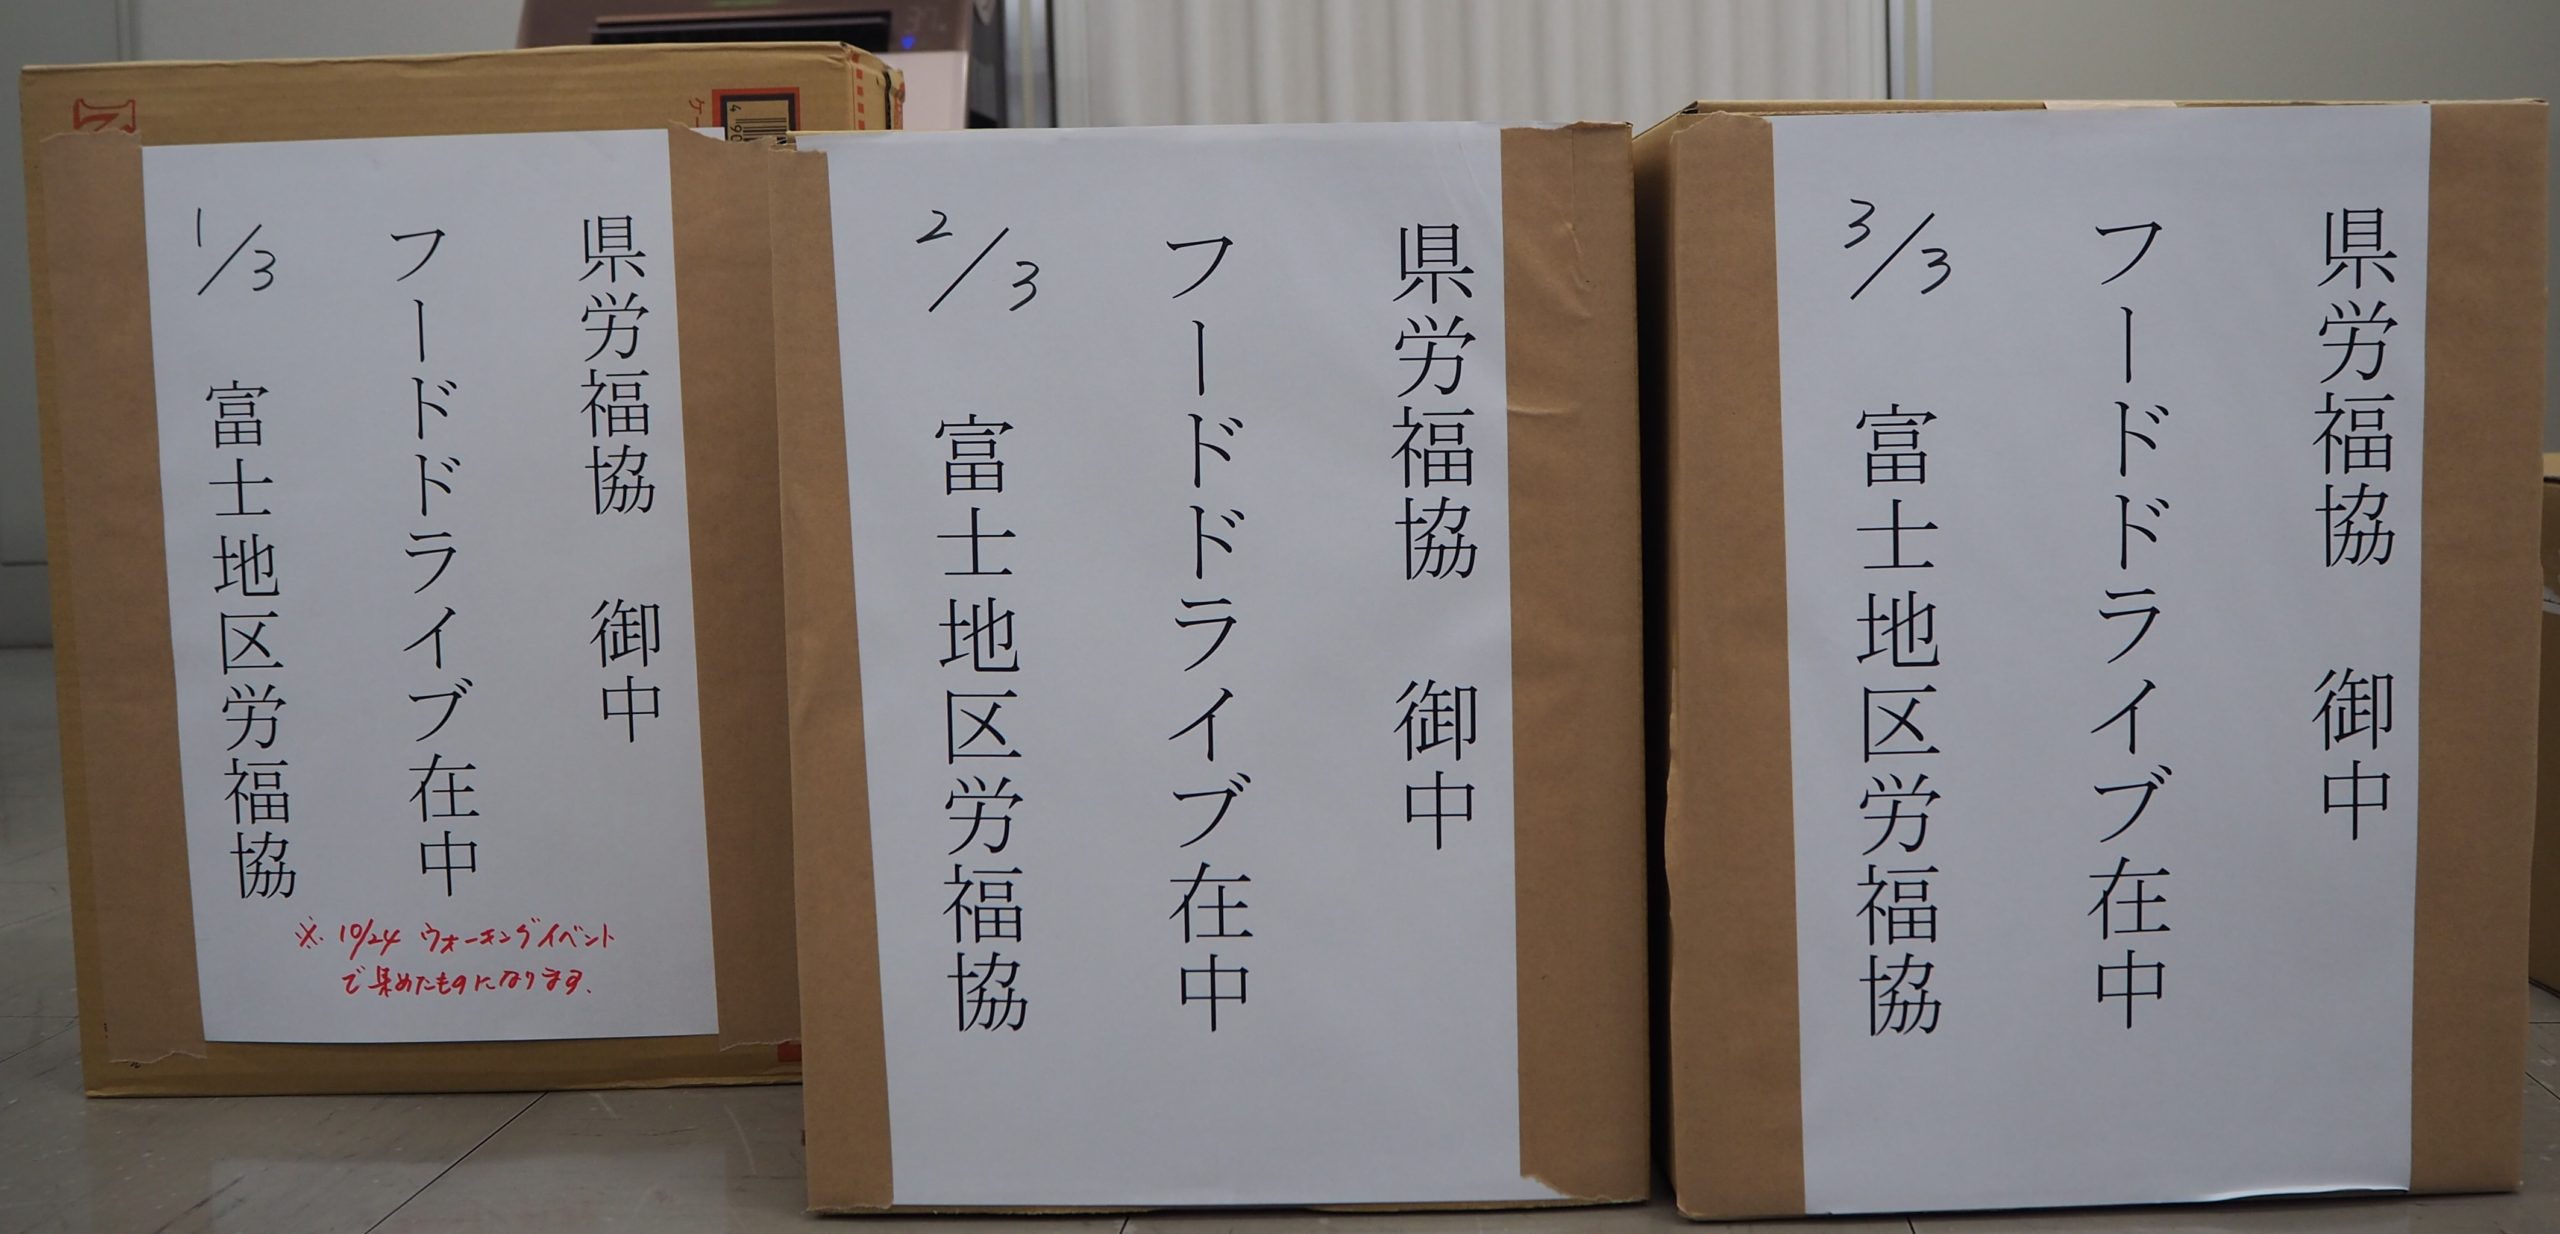 県労福協　御中
フードドライブ在中
1/3　富士地区労福協
※ 10/24 ウォーキングイベント
で集めたものになります。
県労福協　御中
フードドライブ在中
2/3　富士地区労福協
県労福協　御中
フードドライブ在中
3/3　富士地区労福協